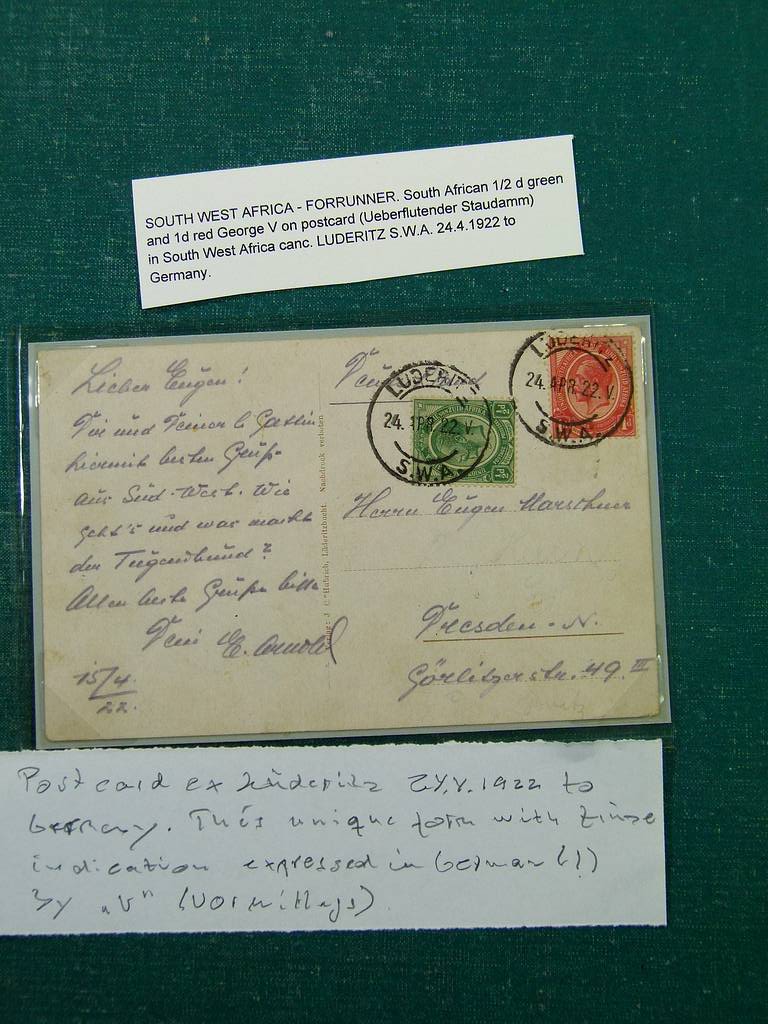 SOUTH WEST AFRICA - FORRUNNER. South African 1/2 d green
and 1d red George V on postcard (Ueberflutender Staudamm)
in South West Africa canc. LUDERITZ S.W.A. 24.4.1922 to
Germany.
Lieber Eugen!
Dir und Deiner l. Gattin
hiermit besten Gruß
aus Süd-West. Wie
geht's und was macht
der Tugendbund?
Allen beste Grüße bitte
Dein E. Arnold
15/4.
22.
Verlag: J. C. Hubrich, Lüderitzbucht Nachdruck verboten
LUDERITZ
24.APR.22.V
S.W.A.
LUDERITZ
24.APR.22.V.
S.W.A.
Herrn Eugen Marschner
Dresden-N.
Görlitzerstr. 49 III
Postcard ex Lüderitz 24.V.1922 to
Germany. This unique form with time
indication expressed in German (!)
by „V" (Vormittags)